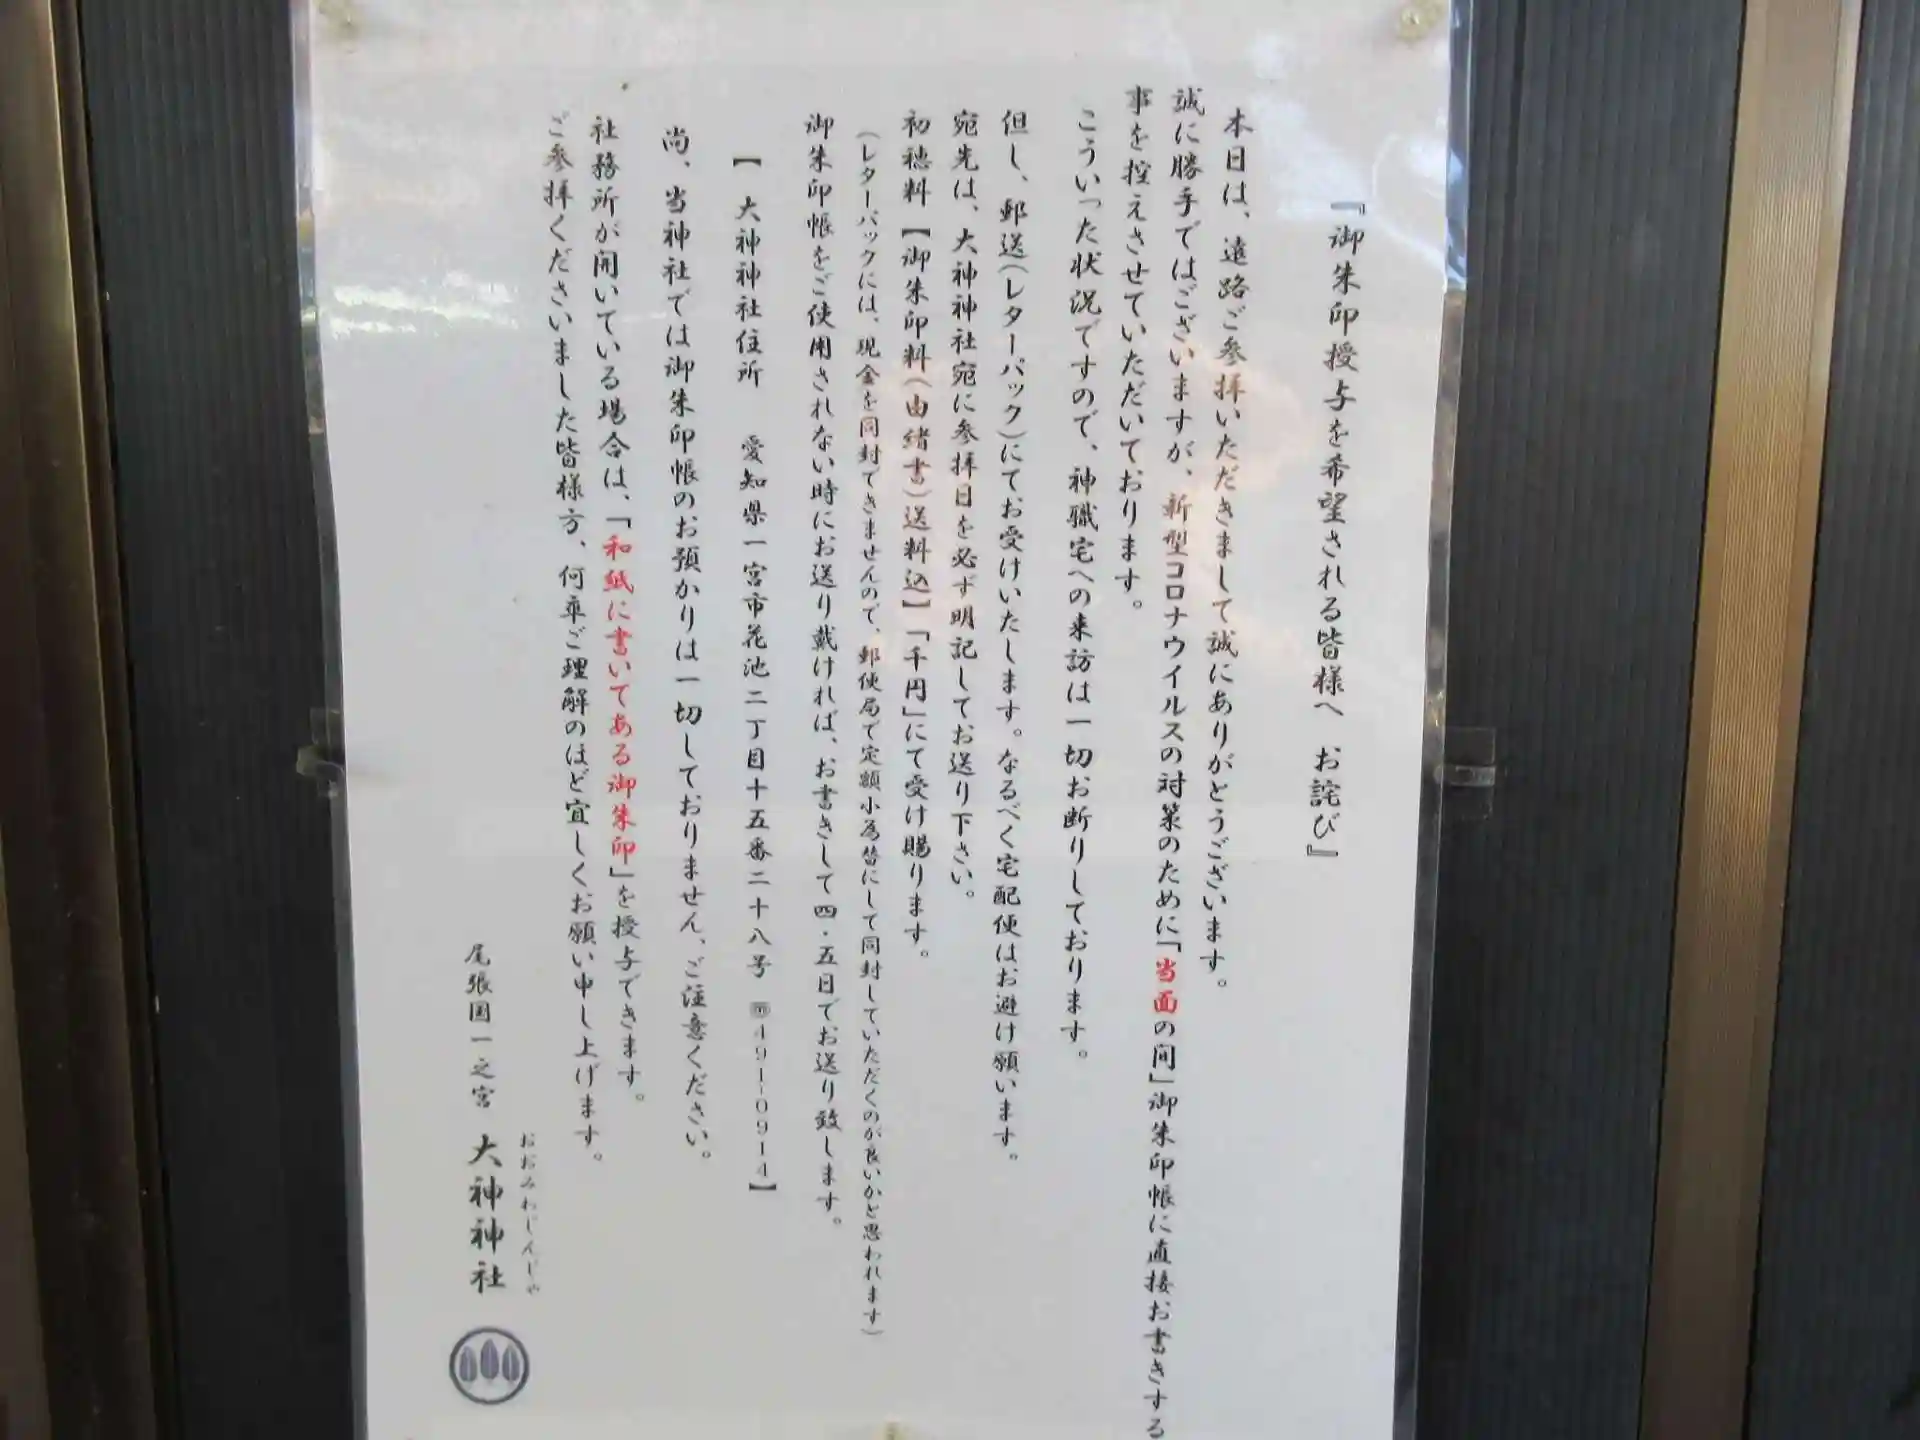 『御朱印授与を希望される皆様へ　お詫び』
本日は、遠路ご参拝いただきまして誠にありがとうございます。
誠に勝手ではございますが、新型コロナウイルスの対策のために「当面の间」御朱印帳に直接お書きする
事を控えさせていただいております。
こういった状況ですので、神職宅への来訪は一切お断りしております。
但し、郵送(レターパック)にてお受けいたします。なるべく宅配便はお避け願います。
宛先は、大神神社宛に参拝日を必ず明記してお送り下さい。
初穂料【御朱印料(由緒書)送料込】「千円」にて受け賜ります。
(レターパックには、現金を同封できませんので、郵便局で定額小為替にして同封していただくのが良いかと思われます)
御朱印帳をご使用されない時にお送り戴ければ、お書きして四・五日でお送り致します。
【　大神神社住所　愛知県一宮市花池二丁目十五番二十八号　〠491-0914】
尚、当神社では御朱印帳のお預かりは一切しておりません、ご注意ください。
社務所が開いている場合は、「和紙に書いてある御朱印」を授与できます。
ご参拝くださいました皆様方、何卒ご理解のほど宜しくお願い申し上げます。
おおみわじんじゃ
尾張国一之宮　大神神社